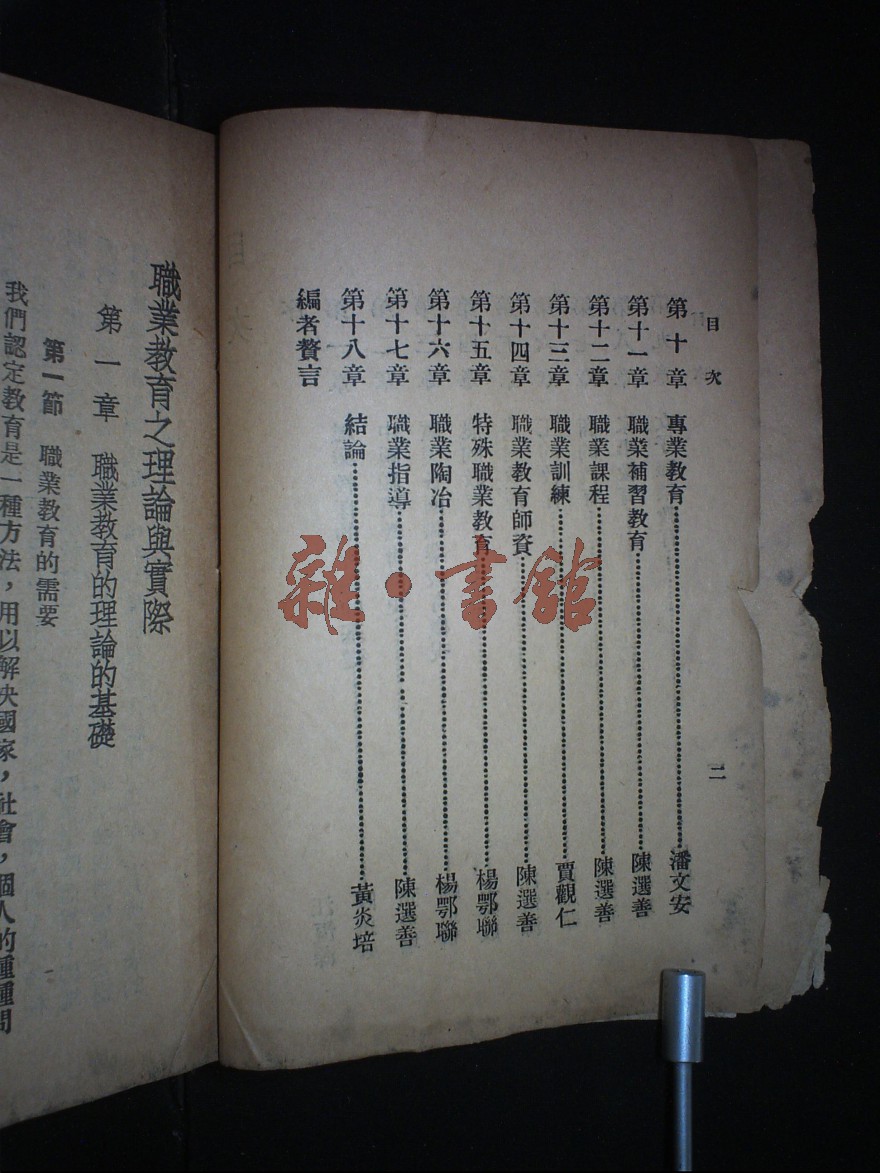 目次 二
第十章 專業教育 潘文安
第十一章 職業補習教育 陳選善
第十二章 職業課程 陳選善
第十三章 職業訓練 賈觀仁
第十四章 職業教育師資 陳選善
第十五章 特殊職業教育 楊鄂聯
第十六章 職業陶冶 楊鄂聯
第十七章 職業指導 陳選善
第十八章 結論 黃炎培
編者贅言
職業教育之理論與實際
第一章 職業教育的理論的基礎
第一節 職業教育的需要
我們認定教育是一種方法，用以解決國家，社會，個人的種種問
雜·書館